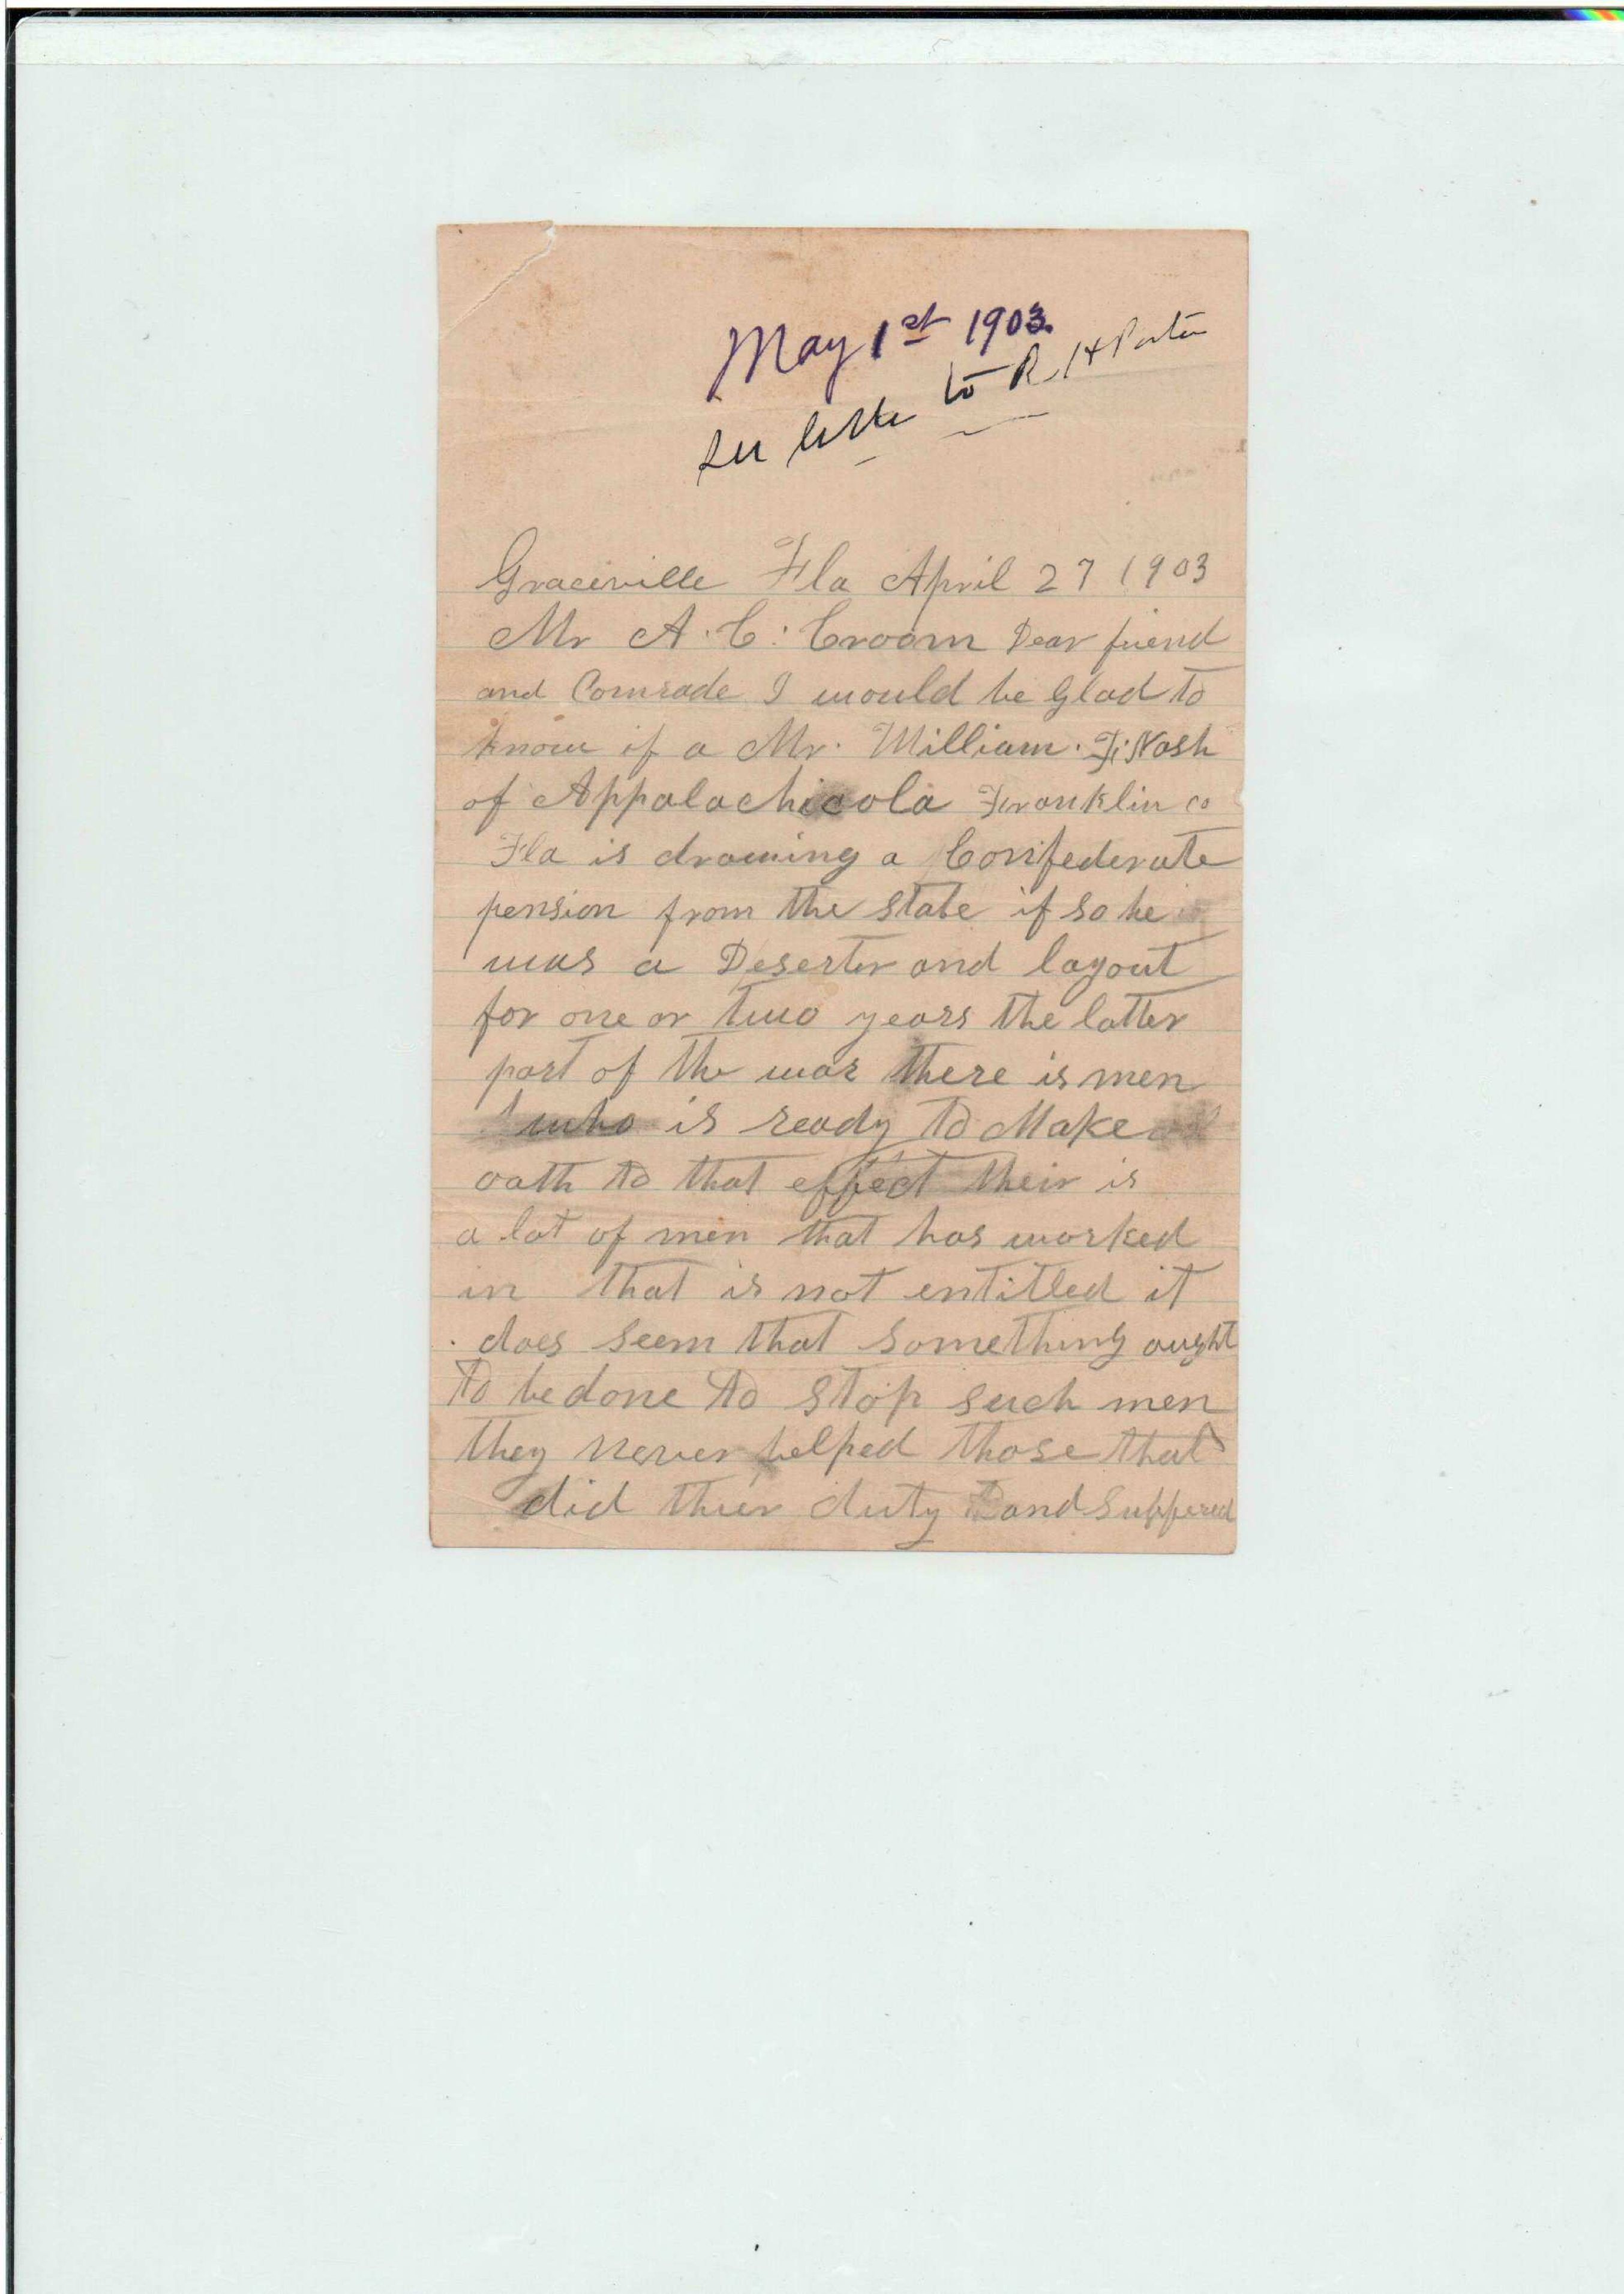 May 1st 1903.
See letter to R. H Porter
Graceville Fla April 27 1903
Mr A. C. Croom Dear friend
and Comrade I would be Glad to
know if a Mr. William. F. Nash
of Appalachicola Franklin co
Fla is drawing a Confederate
pension from the state if so he
was a Deserter and layout
for one or two years the latter
part of the war there is men
who is ready to Make
oath to that effect their is
a lot of men that has worked
in that is not entitled it
does seem that something ought
to be done to stop such men
they never helped those that
did thier duty and Suffered